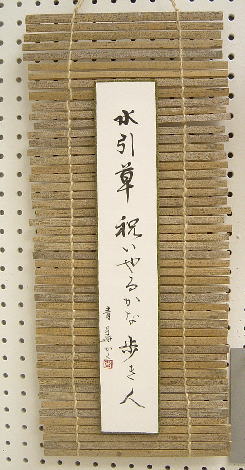 水引草祝いやるかな歩き人